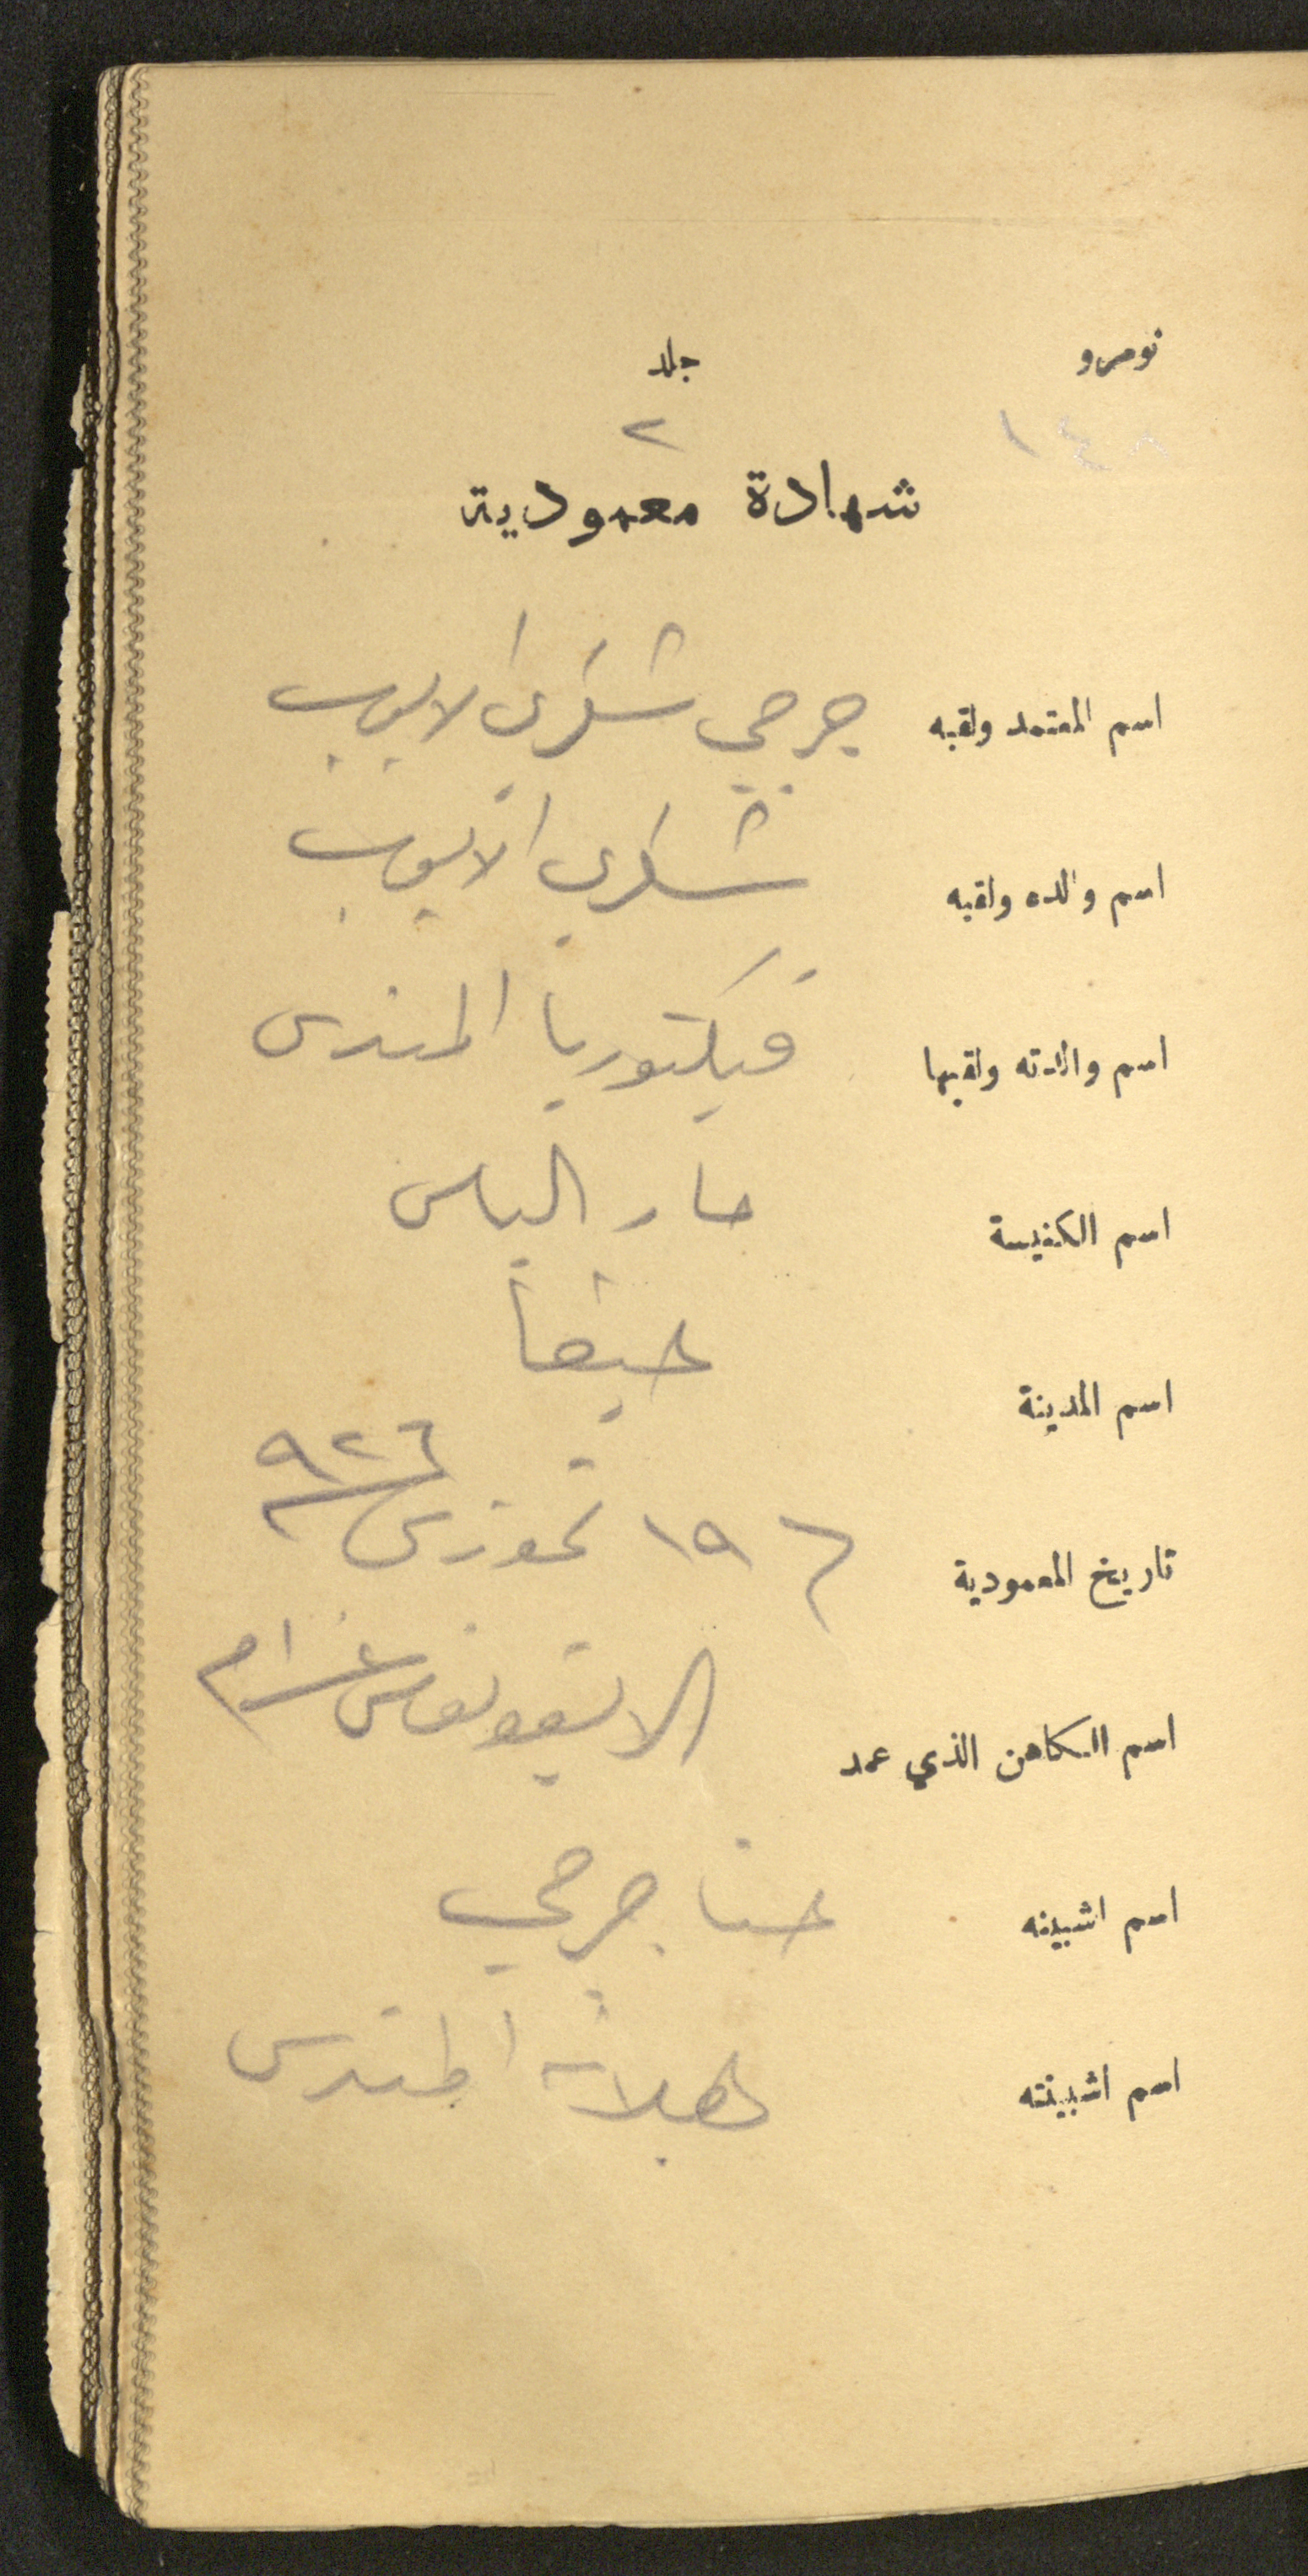 نومرو جلد
١٤٨ ٢
شهادة معمودية
اسم المعتمد ولقبه جرجي شكري الايوب
اسم والده ولقبه شكري الايوب
اسم والدته ولقبها فيكتوريا المندس
اسم الكنيسة مار الياس
اسم المدينة حيفا
تاريخ المعمودية ١٩ تموز سنة ٩٢٦
اسم الكاهن الذي عمد الايقونوموس
اسم اشبينه حنا جرجي
اسم اشبينته هيلانه المندس